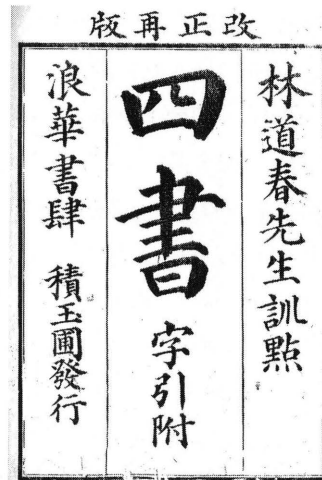 改正再版
林道春先生訓點
四書 字引附
浪華書肆 積玉圃發行